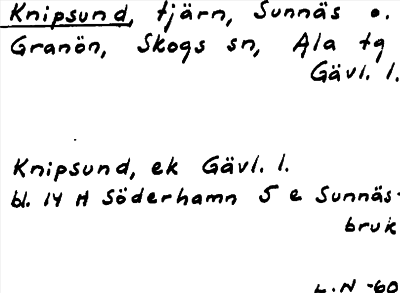 Knipsund, tjärn, Sunnäs o.
Granön, Skogs sn, Ala tg
Gävl. l.
Knipsund, ek Gävl. l.
bl. 14 H Söderhamn 5 e Sunnäs-
bruk
L.N -60